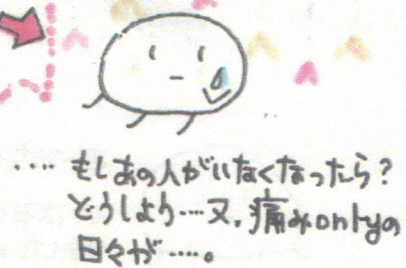 ‥‥もしあの人がいなくなったら?
どうしよう‥‥又、痛みonlyの
日々が‥‥。